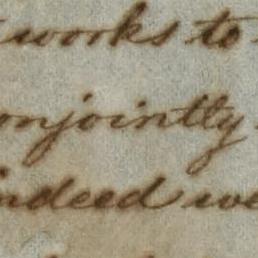 works to
onjointly
indeed we